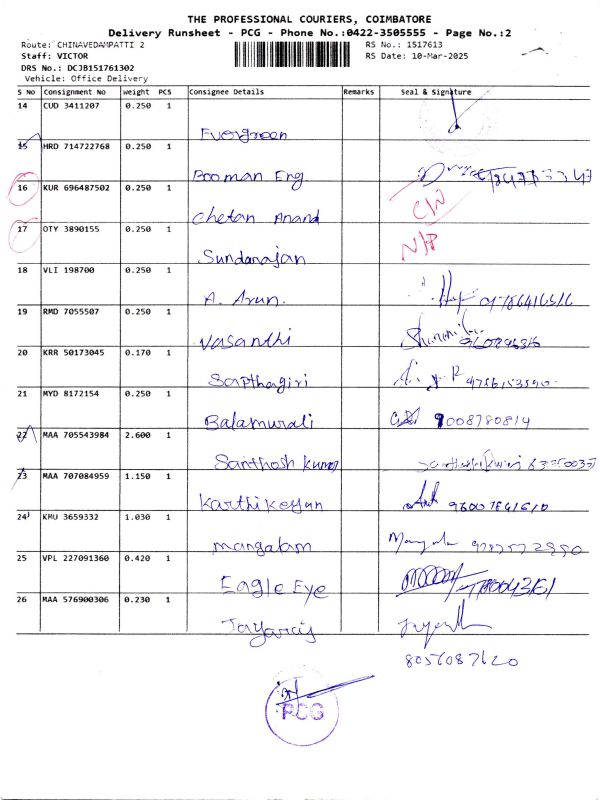 THE PROFESSIONAL COURIERS, COIMBATORE
Delivery Runsheet - PCG - Phone No.:0422-3505555 - Page No.:2
Route: CHINAVEDAMPATTI 2
RS No.: 1517613
Staff: VICTOR
RS Date: 10-Mar-2025
DRS No.: DCJB151761302
Vehicle: Office Delivery
S No Consignment No Weight PCS Consignee Details Remarks Seal & Signature
14 CUD 3411207 0.250 1
Evergreen
15 HRD 714722768 0.250 1
Booman Eng.
16 KUR 696487502 0.250 1
Chetan Anand
17 OTY 3890155 0.250 1
N/P
Sundarajan
18 VLI 198700 0.250 1
A. Arun.
19 RMD 7055507 0.250 1
Vasanthi
20 KRR 50173045 0.170 1
Sapthagiri
21 MYD 8172154 0.250 1
Balamurali 9008780814
22 MAA 705543984 2.600 1
Santhosh Kumar
23 MAA 707084959 1.150 1
Karthikeyan
24 KMU 3659332 1.030 1
Mangalam
25 VPL 227091360 0.420 1
Eagle Eye
26 MAA 576900306 0.230 1
Jayaraj
8056087620
PCG